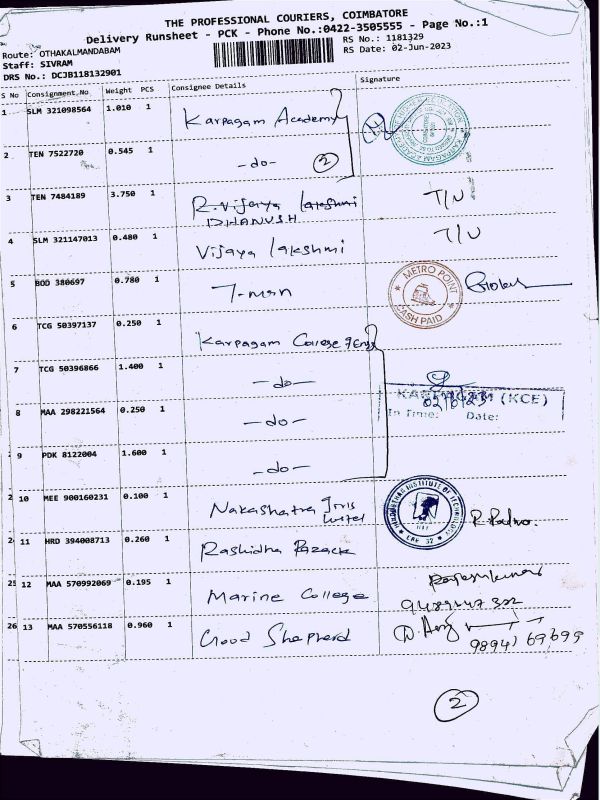 THE PROFESSIONAL COURIERS, COIMBATORE
Delivery Runsheet - PCK - Phone No.:0422-3505555 - Page No.:1
Route: OTHAKALMANDABAM
RS No.: 1181329
Staff: SIVRAM
RS Date: 02-Jun-2023
DRS No.: DCJB118132901
S No Consignment.No Weight PCS Consignee Details Signature
1 SLM 321098564 1.010 1 Karpagam Academy
2 TEN 7522720 0.545 1 -do- 2
3 TEN 7484189 3.750 1 R. Vijaya lakshmi T/U
DHANUSH
4 SLM 321147013 0.480 1 Vijaya lakshmi T/U
5 BOD 380697 0.780 1 METRO POINT CASH PAID
6 TCG 50397137 0.250 1 Karpagam College
7 TCG 50396866 1.400 1 -do-
(KCE)
In Time: Date:
8 MAA 298221564 0.250 1 -do-
9 PDK 8122004 1.600 1 -do-
2 10 MEE 900160231 0.100 1 Nakashatra
HINDUSTHAN INSTITUTE OF TECHNOLOGY
2 11 HRD 394008713 0.260 1 Rashidha Razack
25 12 MAA 570992069 0.195 1 Marine College
26 13 MAA 570556118 0.960 1 Good Shepherd
98941 69699
2